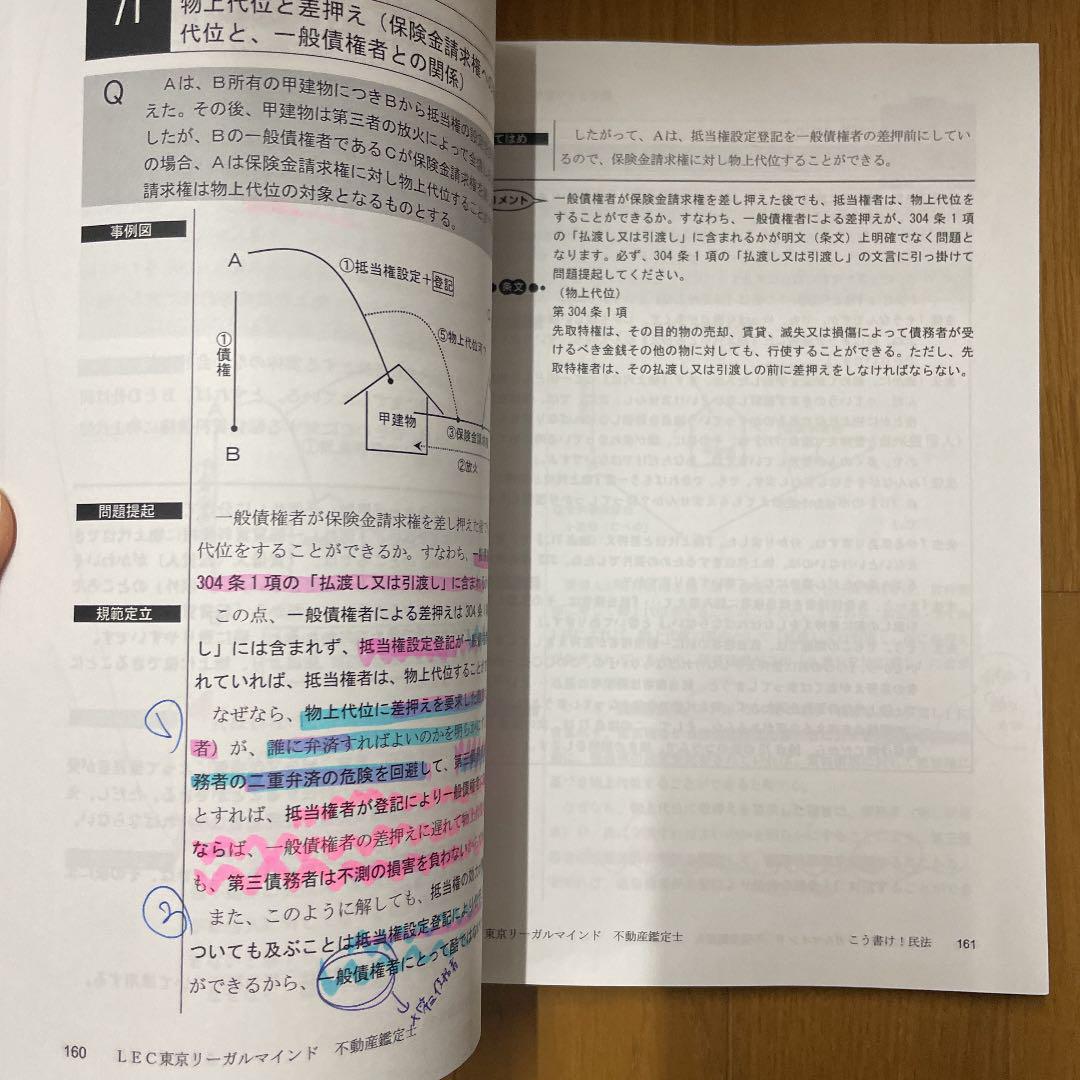 物上代位と差押え（保険金請求権への
代位と、一般債権者との関係）
Q
Aは、B所有の甲建物につきBから抵当権の設定
えた。その後、甲建物は第三者の放火によって全焼
したが、Bの一般債権者であるCが保険金請求権を
の場合、Aは保険金請求権に対し物上代位すること
請求権は物上代位の対象となるものとする。
事例図
A
①抵当権設定＋登記
⑤物上代位
①債権
甲建物
③保険金請求
②放火
B
問題提起
一般債権者が保険金請求権を差し押えた後で
代位をすることができるか。すなわち、一般
304条1項の「払渡し又は引渡し」に含まれ
規範定立
この点、一般債権者による差押えは304条
し」には含まれず、抵当権設定登記が一般
れていれば、抵当権者は、物上代位すること
①
なぜなら、物上代位に差押えを要求した
者）が、誰に弁済すればよいのかを明らかに
務者の二重弁済の危険を回避して、第三
とすれば、抵当権者が登記により一般債権者
ならば、一般債権者の差押えに遅れて物上
も、第三債務者は不測の損害を負わない
②
また、このように解しても、抵当権の効力
ついても及ぶことは抵当権設定登記により
一般債権者にとって酷ではない
ができるから、
160 LEC東京リーガルマインド 不動産鑑定士
てはめ
したがって、Aは、抵当権設定登記を一般債権者の差押前にしてい
るので、保険金請求権に対し物上代位することができる。
メント
一般債権者が保険金請求権を差し押えた後でも、抵当権者は、物上代位を
することができるか。すなわち、一般債権者による差押えが、304条1項
の「払渡し又は引渡し」に含まれるかが明文（条文）上明確でなく問題と
なります。必ず、304条1項の「払渡し又は引渡し」の文言に引っ掛けて
問題提起してください。
条文
（物上代位）
第304条1項
先取特権は、その目的物の売却、賃貸、滅失又は損傷によって債務者が受
けるべき金銭その他の物に対しても、行使することができる。ただし、先
取特権者は、その払渡し又は引渡しの前に差押えをしなければならない。
東京リーガルマインド 不動産鑑定士
こう書け！民法 161